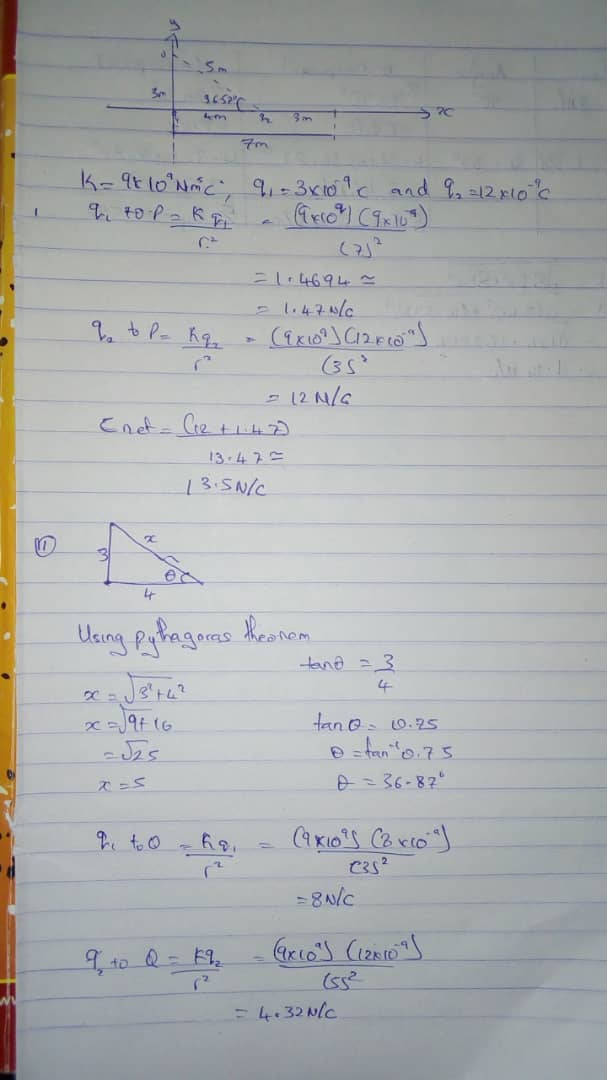 y
5m
3m
36.87°
4m q₂ 3m
x
7m
K = 9×10⁹Nm²c⁻², q₁ = 3×10⁻⁹c and q₂ = 12×10⁻⁹c
q₁ to P = Kq₁/r² = (9×10⁹)(9×10⁻⁹)/(7)²
= 1.4694 ≃
= 1.47N/c
q₂ to P = Kq₂/r² = (9×10⁹)(12×10⁻⁹)/(3)²
= 12N/c
Enet = (12 + 1.47)
13.47 ≃
13.5N/C
11
3 x
θ
4
Using pythagoras theorem
tanθ = 3/4
x = √3²+4²
x = √9+16 tanθ = 0.75
= √25 θ = tan⁻¹0.75
x = 5 θ = 36.87°
q₁ to Q = Kq₁/r² = (9×10⁹)(8×10⁻⁹)/(3)²
= 8N/C
q₂ to Q = Kq₂/r² = (9×10⁹)(12×10⁻⁹)/(5)²
= 4.32N/c